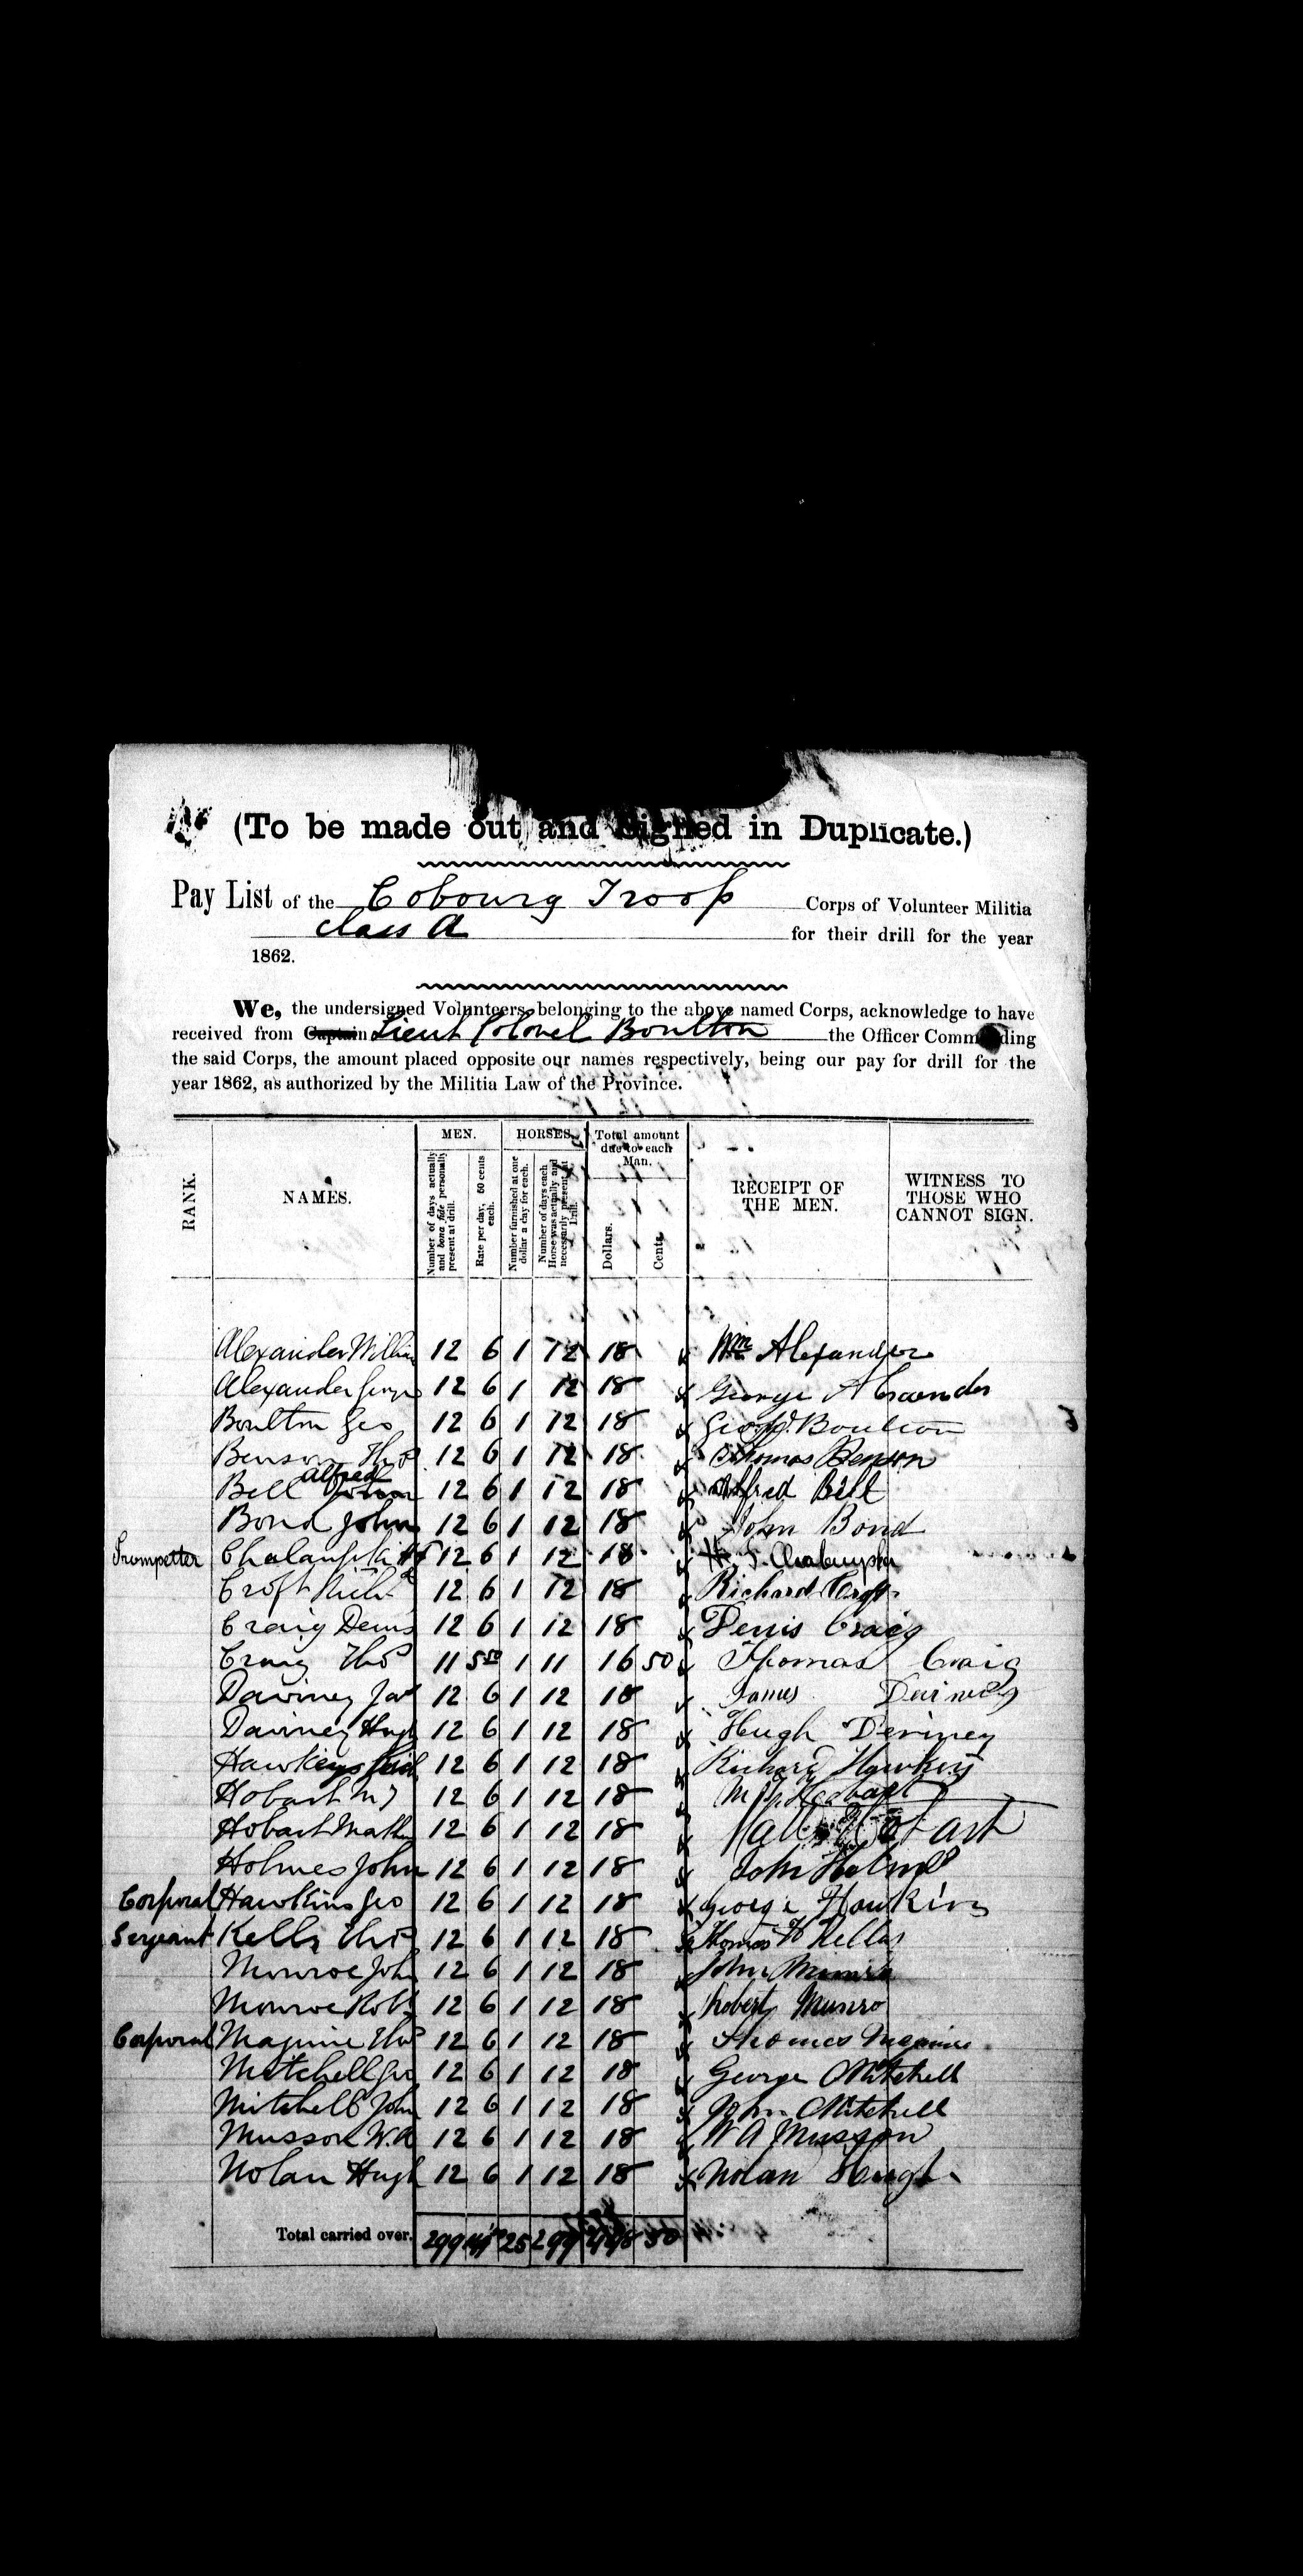 (To be made out and Signed in Duplicate.)
Pay List of the Cobourg Troop Corps of Volunteer Militia
class A for their drill for the year
1862.
We, the undersigned Volunteers, belonging to the above named Corps, acknowledge to have
received from Captain Lieut Colonel Boulton the Officer Commanding
the said Corps, the amount placed opposite our names respectively, being our pay for drill for the
year 1862, as authorized by the Militia Law of the Province.
RANK. NAMES. MEN. HORSES. Total amount due to each Man. RECEIPT OF THE MEN. WITNESS TO THOSE WHO CANNOT SIGN.
Number of days actually and bona fide personally present at drill. Rate per day, 50 cents each. Number furnished at one dollar a day for each. Number of days each Horse was actually and necessarily present at Drill. Dollars. Cents.
Alexander William 12 6 1 12 18 x Wm Alexander
Alexander George 12 6 1 12 18 x George
Boulton Geo 12 6 1 12 18 x Boulton
Benson Thos 12 6 1 12 18 x Thomas Benson
Bell Alfred 12 6 1 12 18 x Alfred Bell
Bond John 12 6 1 12 18 x John Bond
Trumpetter 12 6 1 12 18 x
Croft Richd 12 6 1 12 18 x Richard Croft
Craig Denis 12 6 1 12 18 x Denis Craig
Craig Thos 11 5 50 1 11 16 50 x Thomas Craig
Dawney Jas 12 6 1 12 18 x James
Dawney Hugh 12 6 1 12 18 x Hugh Deviney
Hawkeys Rich 12 6 1 12 18 x Richard
Hobart M J 12 6 1 12 18 x Hobart
Hobart Math 12 6 1 12 18 x Hobart
Holmes John 12 6 1 12 18 x John Holmes
Corporal Hawkins Geo 12 6 1 12 18 x George Hawkins
Serjeant Kells Thos 12 6 1 12 18 x Thomas Kells
Monroe John 12 6 1 12 18 x John Munro
Monroe Robt 12 6 1 12 18 x Robert Munro
Corporal Maguire Thos 12 6 1 12 18 x Thomas Maguire
Mitchell Geo 12 6 1 12 18 x George Mitchell
Mitchell John 12 6 1 12 18 x John Mitchell
Musson W.A 12 6 1 12 18 x W A Musson
Nolan Hugh 12 6 1 12 18 x Nolan Hugh
Total carried over. 299 25 299 448 50